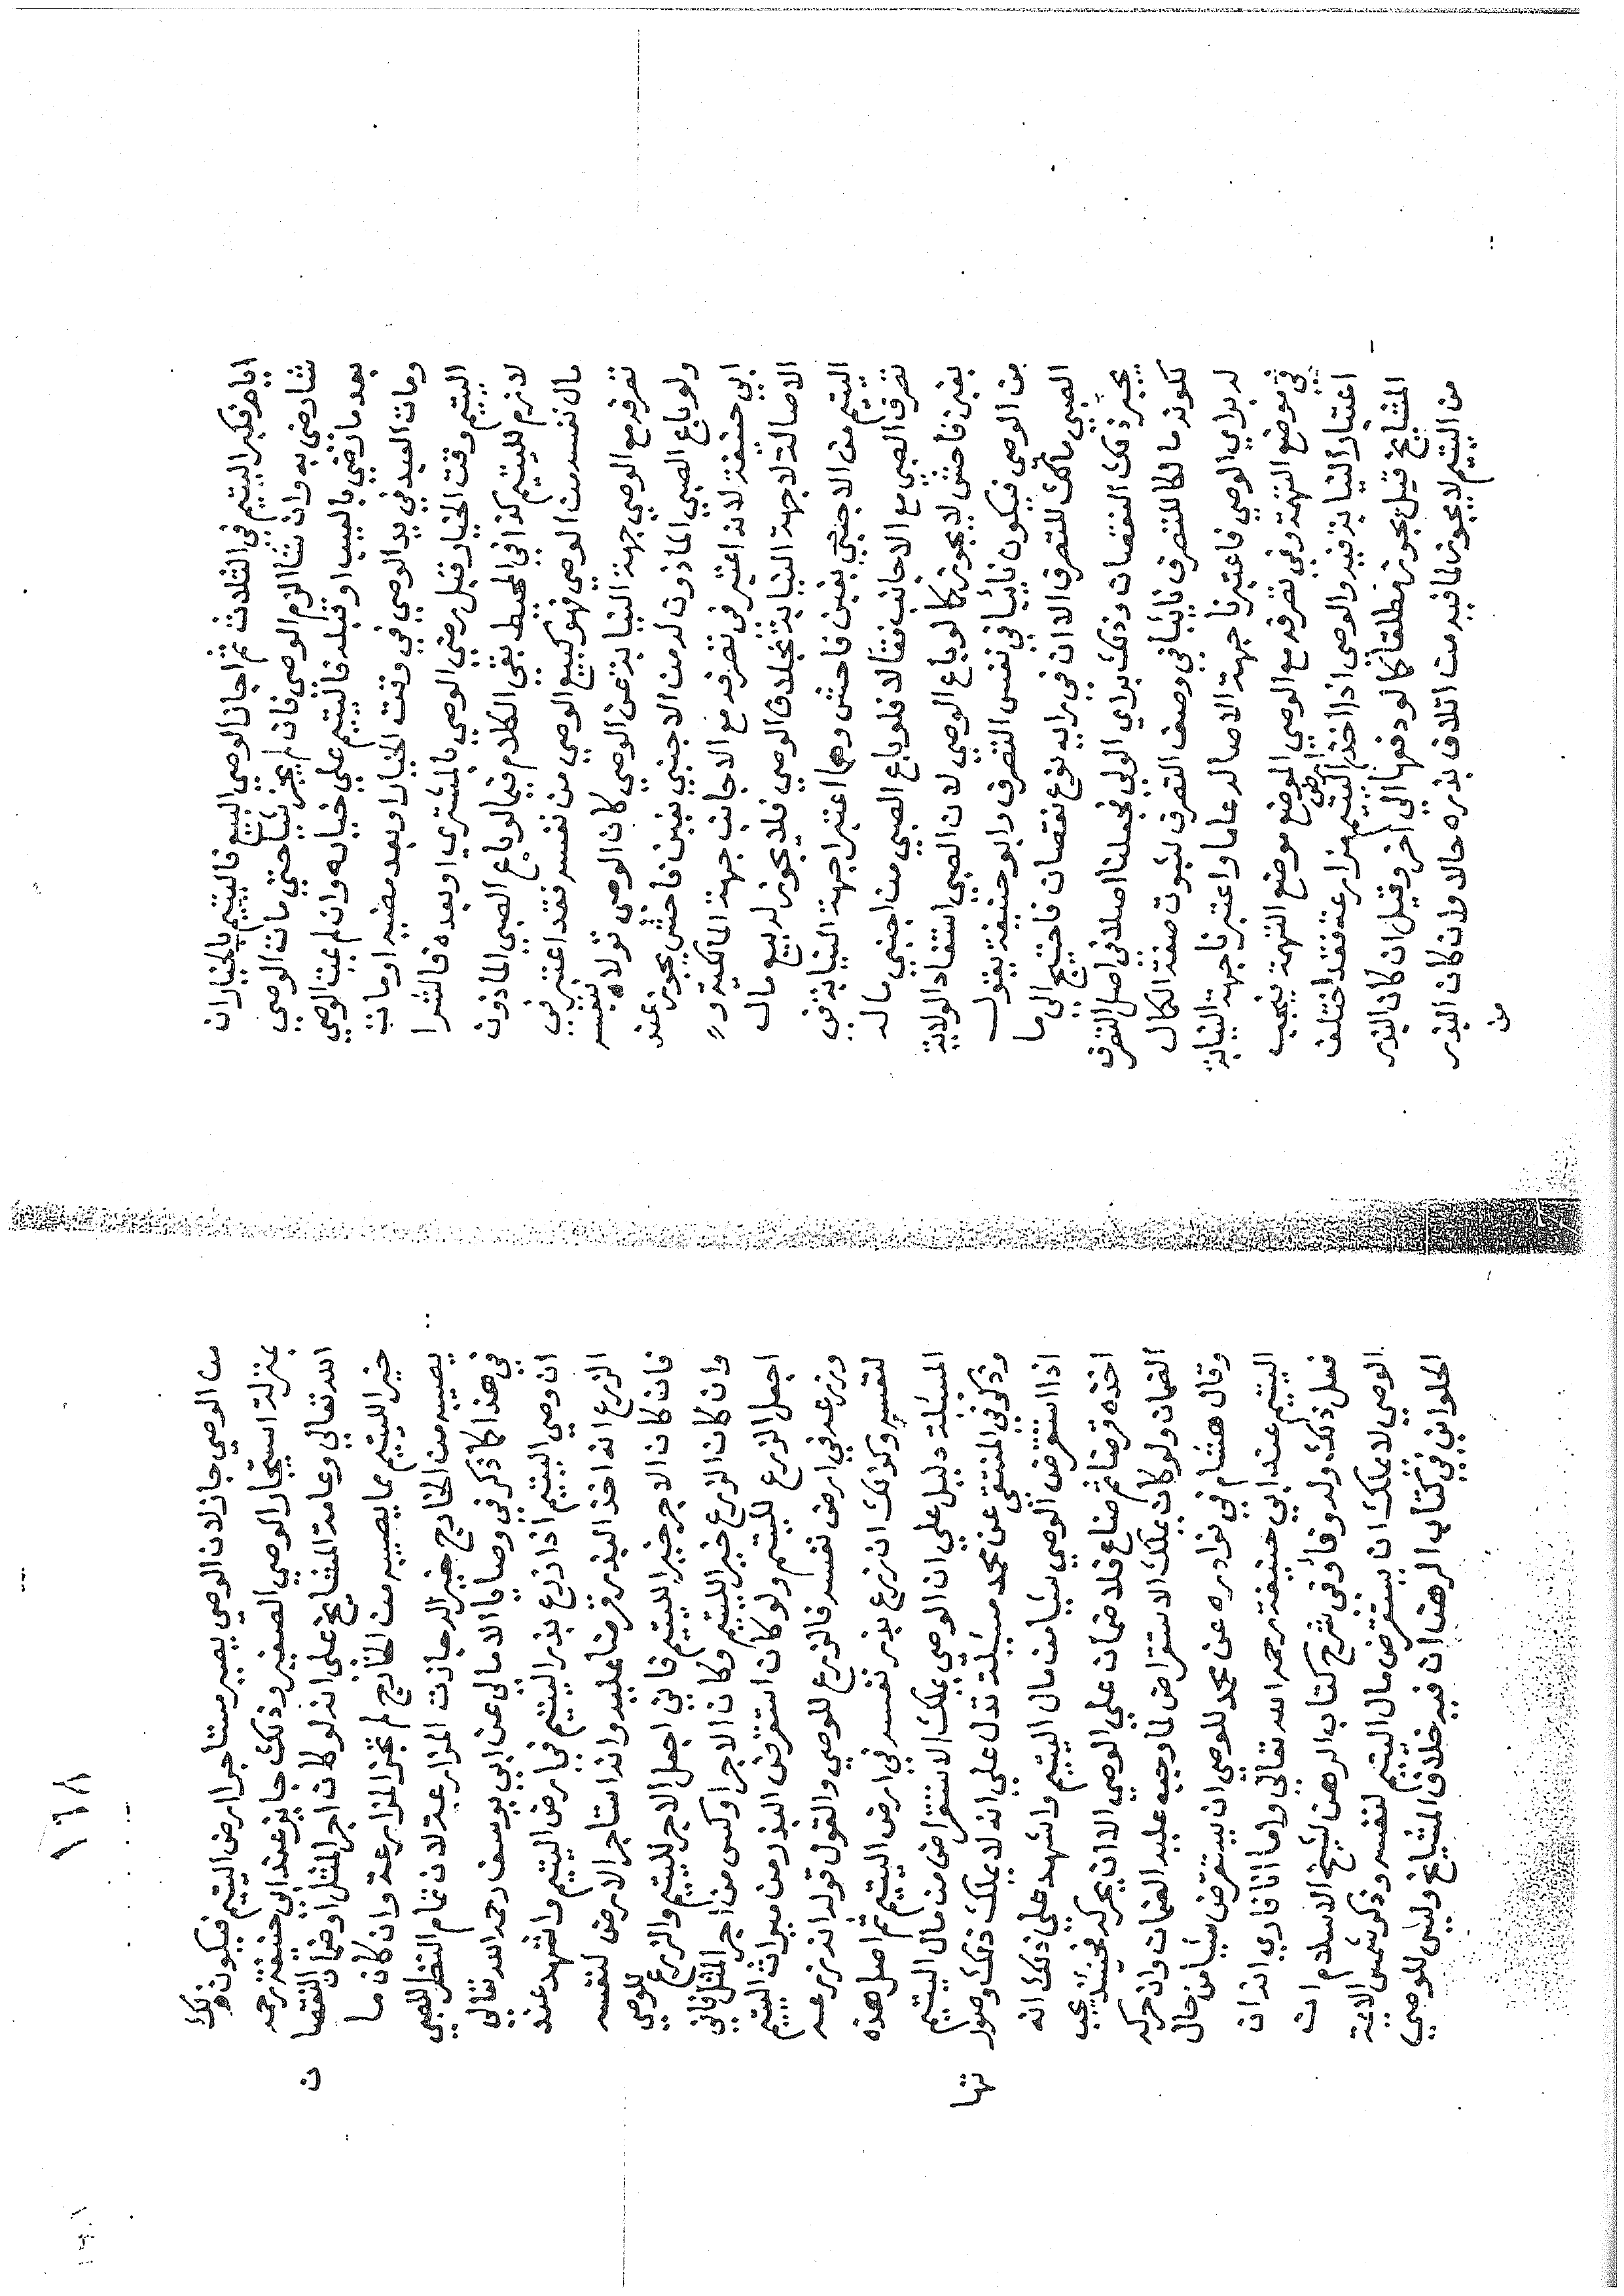 ايام فكبر اليتيم في الثلاث ثم اجاز الوصي البيع فاليتيم بالخيار ان
شا رضي به وان شا الزم الوصي فان لم يجز شيا حتي مات الوصي
بعد ما رضي بالعيب او قبله فاليتيم علي خياره وان لم يمت الوصي
ومات العبد في يد الوصي في وقت الخيار او بعد مضيه او مات
اليتيم وقت الخيار قبل رضي الوصي بالمشتري او بعده فالشرا
لازم لليتيم كذا في المحيط بقي الكلام فيما لو باع الصبي الماذون
مال نفسه من الوصي فهو كبيع الوصي من نفسه فقد اعتبر في
تصرفه مع الوصي جهة النيابة عن الوصي كان الوصي تولاه بنفسه
ولو باع الصبي الماذون له من الاجنبي بغبن فاحش يجوز عند
ابي حنيفة لانه اعتبر في تصرفه مع الاجانب جهة المالكية و
الاصالة لا جهة النيابة بخلاف الوصي فلا يجوز له بيع مال
اليتيم من الاجنبي بغبن فاحش وهما اعتبرا جهة النيابة في
تصرف الصبي مع الاجانب فقالا فلو باع الصبي من اجنبي ماله
بغبن فاحش لا يجوز كما لو باع الوصي لان الصبي استفاد الولاية
من الوصي فيكون نائبا في نفس التصرف وابو حنيفة يقول
الصبي مالك للتصرف الا ان في رايه نوع نقصان فاحتيج الي ما
يجبر ذلك النقصان وذلك براي الولي فجعلنا اصلا في اصل التصرف
لكونه مالكا للتصرف نائبا في وصف التصرف لثبوت صفة الكمال
له براي الوصي فاعتبرنا جهة الاصالة عاما واعتبرنا جهة النيابة
في موضع التهمة وفي تصرفه مع الوصي الموضع موضع التهمة فيجب
اعتبار النيابة فيه والوصي اذا اخذ ارض اليتيم مزارعة فقد اختلف
المشايخ قيل يجوز مطلقا كما لو دفعها الي اخر وقيل ان كان البذر
من اليتيم لا يجوز لما فيه من اتلاف بذره حالا وان كان البذر
من
١٦٨
من الوصي جاز لان الوصي يصير مستاجرا ارض اليتيم فيكون ذلك
بمنزلة استيجار الوصي الصغير وذلك جايز عند ابي حنيفة رحمه
الله تعالي وعامة المشايخ علي انه لو كان اجر المثل او ضمان النقصا
ن
خير لليتيم مما يصيبه من الخارج لم تجز المزارعة وان كان ما
يصيبه من الخارج خير له جازت المزارعة لان تمام النظر للصبي
في هذا كما ذكر في وصايا الامالي عن ابي يوسف رحمه الله تعالي
ان وصي اليتيم اذا زرع بذر اليتيم في ارض اليتيم واشهد عند
الزرع انه اخذ البذر قرضا عليه وانه استاجر الارض لنفسه
فان كان الاجر خير لليتيم فاني اجعل الاجر لليتيم والزرع للوصي
وان كان الزرع خير لليتيم وكان الاجر اوكس من اجر المثل فاني
اجعل الزرع لليتيم ولو كان استقرض البذر من ميراث اليتيم
وزرعه في ارض نفسه فالزرع للوصي والقول قوله انه زرعه
لنفسه وكذلك ان زرع بذر نفسه في ارض اليتيم ثم اصل هذه
المسئلة دليل علي ان الوصي يملك الاستقراض من مال اليتيم
وذكر في المنتقي عن محمد مسئلة تدل علي انه لا يملك ذلك وصور
تها
اذا استقرض الوصي شيا من مال اليتيم واشهد علي ذلك انه
اخذه قرضا ثم ضاع فلا ضمان علي الوصي الا ان يحركه فحينئذ يجب
الضمان ولو كان يملك الاستقراض لما وجبه عليه الضمان وان حركه
وقال هشام في نوادره عن محمد للوصي ان يستقرض شيا من حال
اليتيم عند ابي حنيفة رحمه الله تعالي واما انا فاري انه ان
فعل ذلك وله وفا وفي شرح كتاب الرهن لشيخ الاسلام ان
الوصي لا يملك ان يستقرض مال اليتيم لنفسه وذكر شمس الايمة
الحلواني في كتاب الرهن ان فيه خلاف المشايخ وليس للوصي